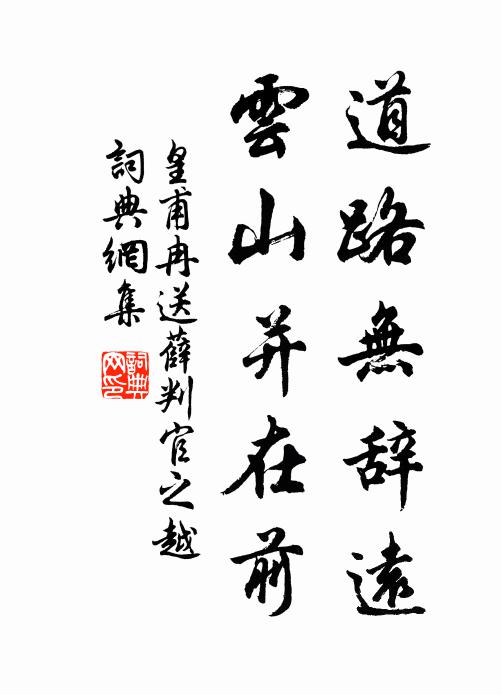 道路無辞遠
雲山并在前
皇甫冉送薛判官之越
詞典網集
詞典網印